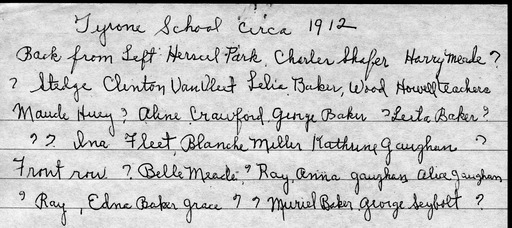 Tyrone School circa 1912
Back from Left Herscel Park, Charles Shafer Harry Meade ?
? Stedge Clinton VanVleet Lelia, Baker, Wood Howell teachers
Maude Huey ? Aline Crawford, George Baker ? Leita Baker ?
? ? Ina Fleet, Blanche Miller Kathrine Gaughan ?
Front row ? Belle Meade, ? Ray, Anna gaughan, Alice gaughan
? Ray, Edna Baker grace ? ? Muriel Baker, George Seybolt ?